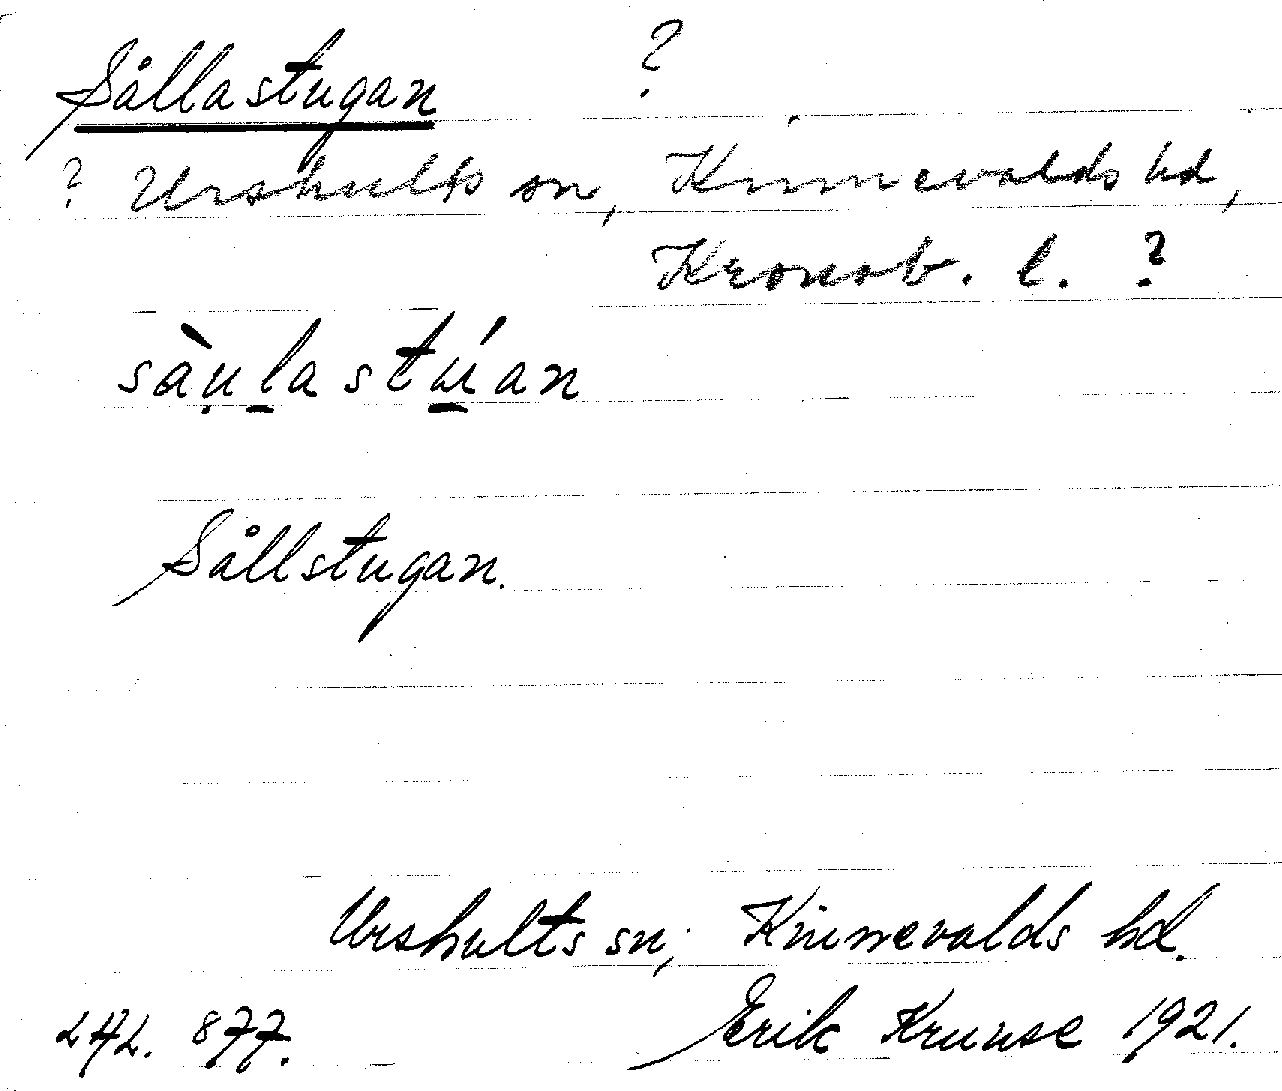 Sållastugan ?
? Urshults sn, Kinnevalds hd,
Kronob. l. ?
sàu̯l̠astú̠an
Sållstugan.
Urshults sn; Kinnevalds hd.
LAL. 877. Erik Krunse 1921.